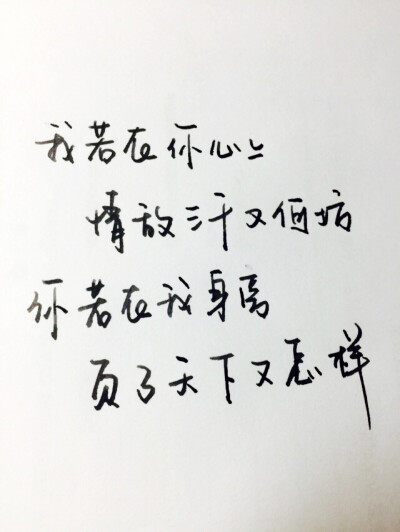 我若在你心上
情敌三千又何妨
你若在我身旁
负了天下又怎样